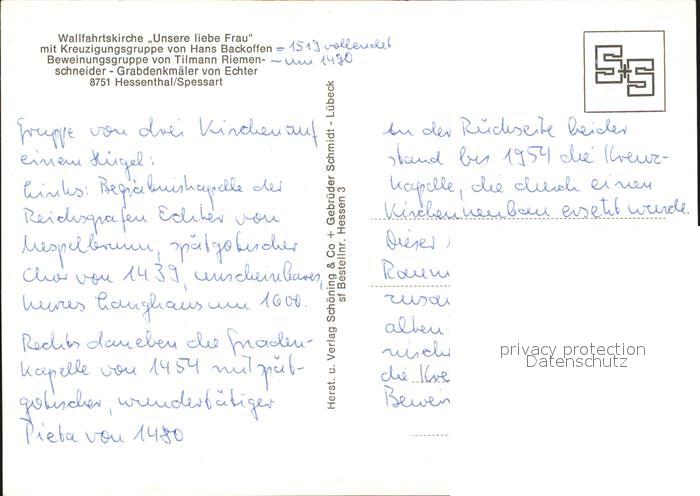 Wallfahrtskirche „Unsere liebe Frau"
mit Kreuzigungsgruppe von Hans Backoffen = 1519 vollendet
Beweinungsgruppe von Tilmann Riemen- – um 1490
schneider - Grabdenkmäler von Echter
8751 Hessenthal/Spessart
S+S
Gruppe von drei Kirchen auf
einem Hügel:
Links: Begräbniskapelle der
Reichsgrafen Echter von
Mespelbrunn, spätgotischer
Chor von 1439, unscheinbares,
neues Langhaus um 1600.
Rechts daneben die Gnaden-
kapelle von 1454 mit spät-
gotischer, wundertätiger
Pieta von 1480
Herst. u. Verlag Schöning & Co + Gebrüder Schmidt - Lübeck
sf Bestellnr. Hessen 3
An der Rückseite beider
stand bis 1954 die Kreuz-
kapelle, die durch einen
Kirchenneubau ersetzt wurde.
Dieser
Raum
alten
die Kre
Bewein
privacy protection
Datenschutz